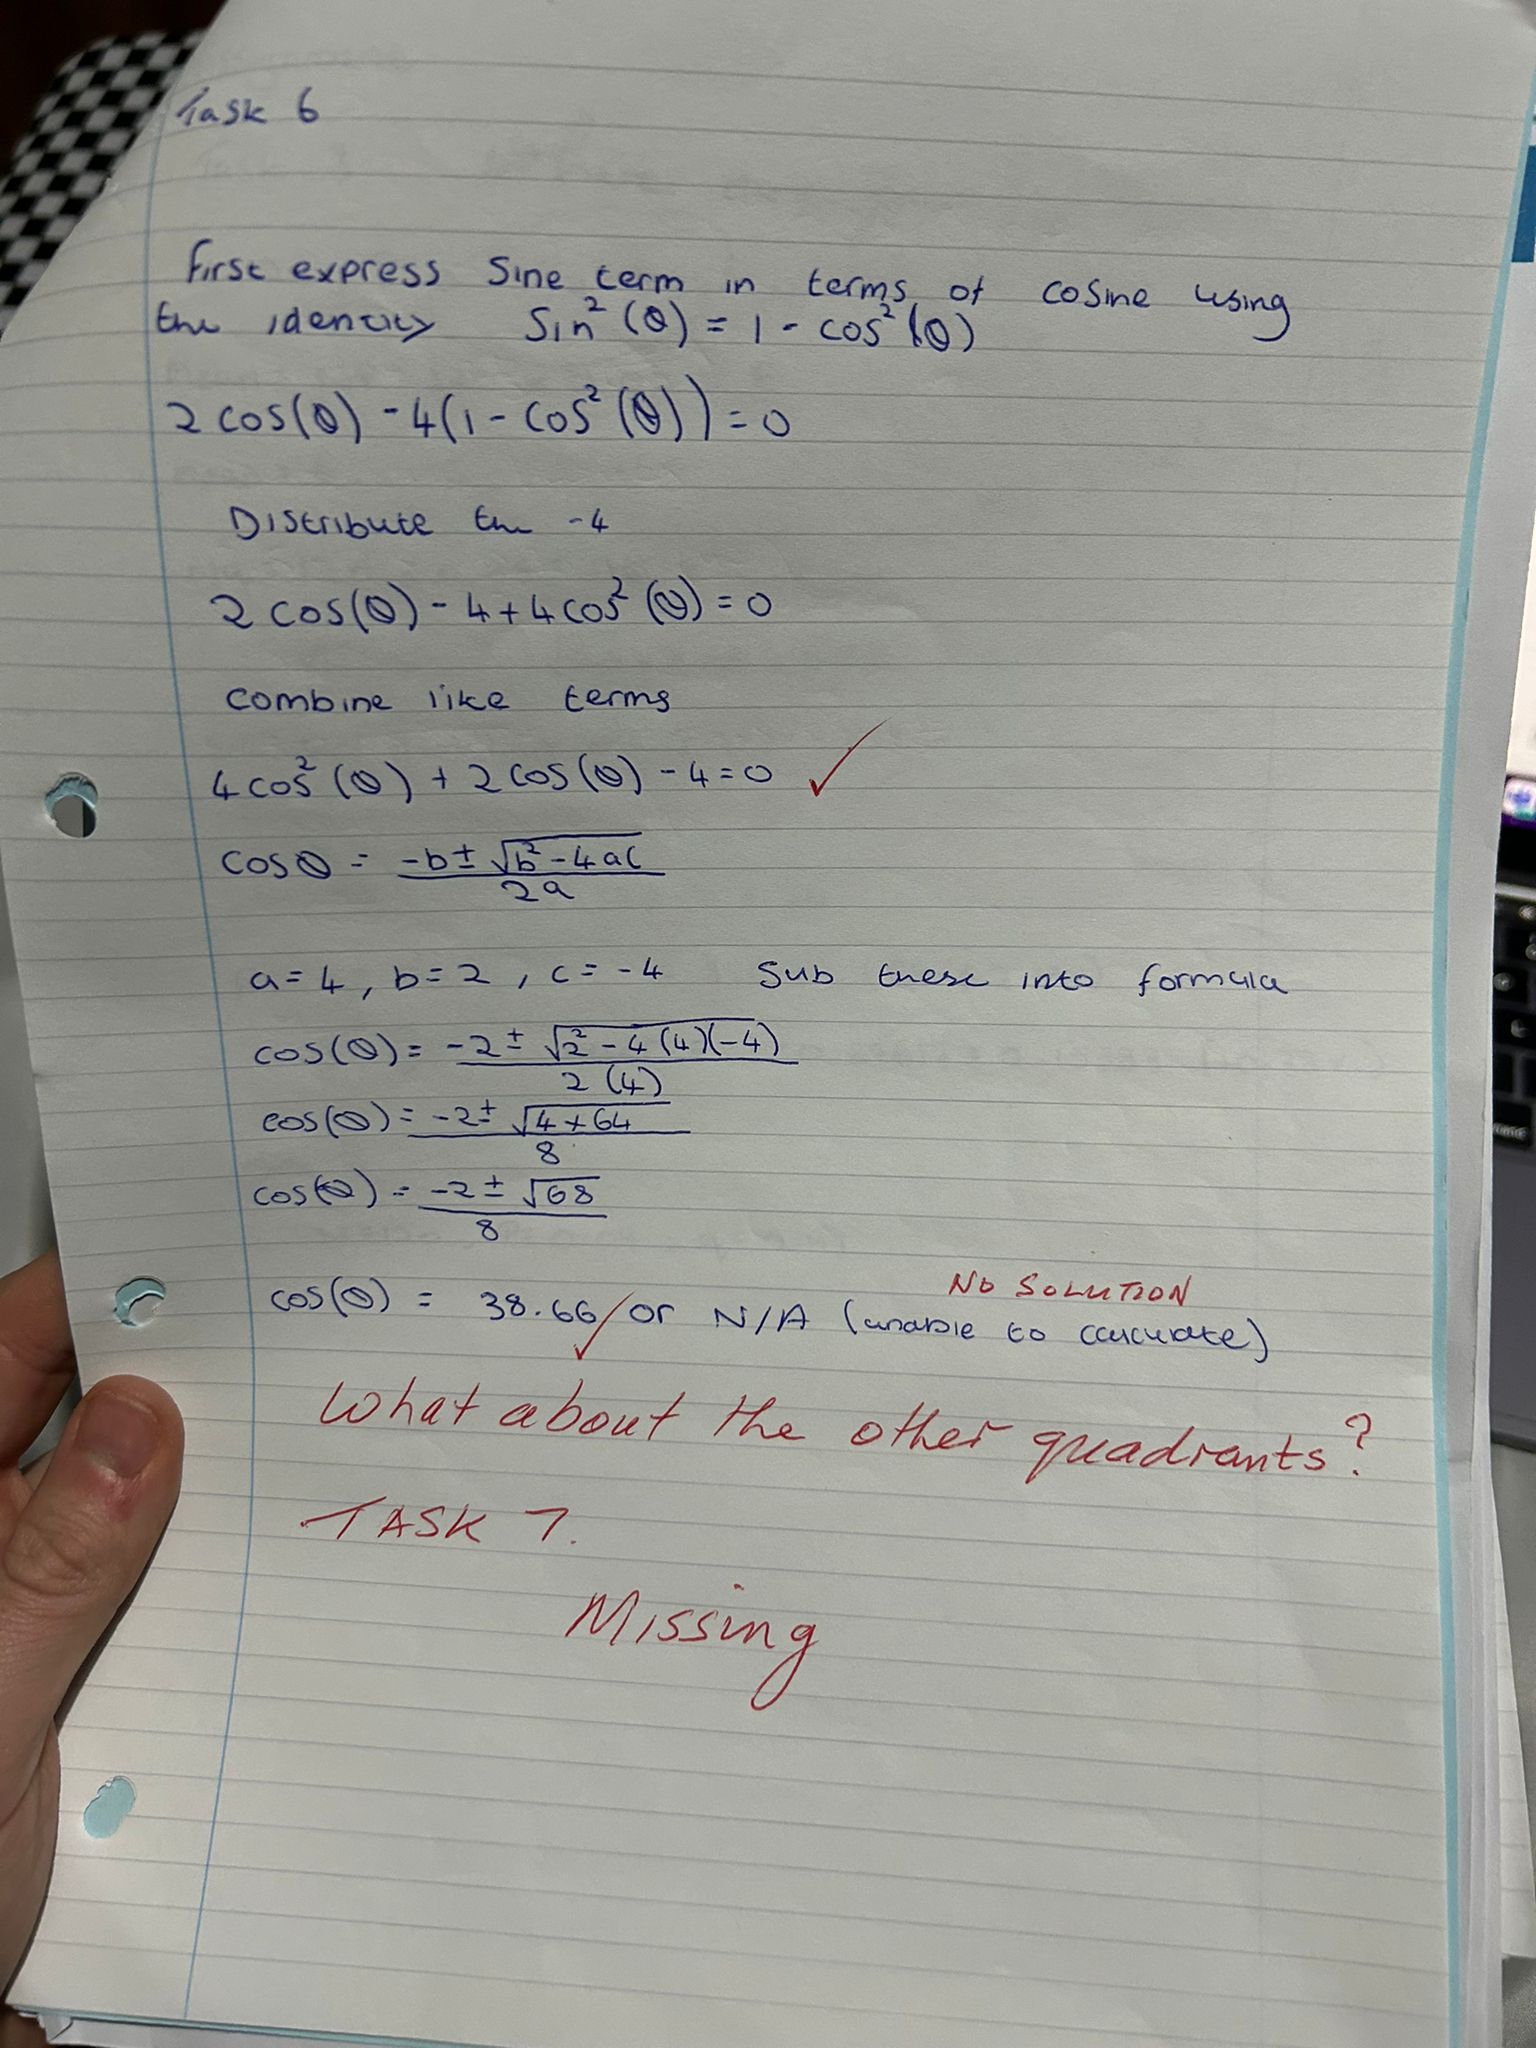 Task 6
First express Sine term in terms of cosine using
the identity Sin²(θ) = 1 - cos²(θ)
2 cos(θ) - 4(1 - cos²(θ)) = 0
Distribute the -4
2 cos(θ) - 4 + 4 cos²(θ) = 0
combine like terms
4 cos²(θ) + 2 cos(θ) - 4 = 0 ✓
cos θ = (-b ± √(b² - 4ac)) / 2a
a = 4, b = 2, c = -4 Sub these into formula
cos(θ) = (-2 ± √(2² - 4(4)(-4))) / 2(4)
cos(θ) = (-2 ± √(4 + 64)) / 8
cos(θ) = (-2 ± √68) / 8
NO SOLUTION
cos(θ) = 38.66 ✓ or N/A (unable to calculate)
What about the other quadrants?
TASK 7.
Missing